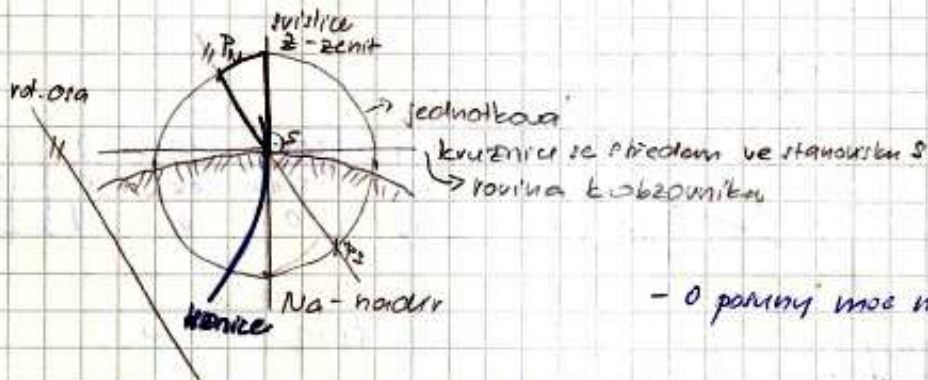 svislice
Z - zenit
P
rot. osa
jednotková
S
kružnice se středem ve stanovisku S
rovina k obzorníku
Na - nadir
- O posuny moc n